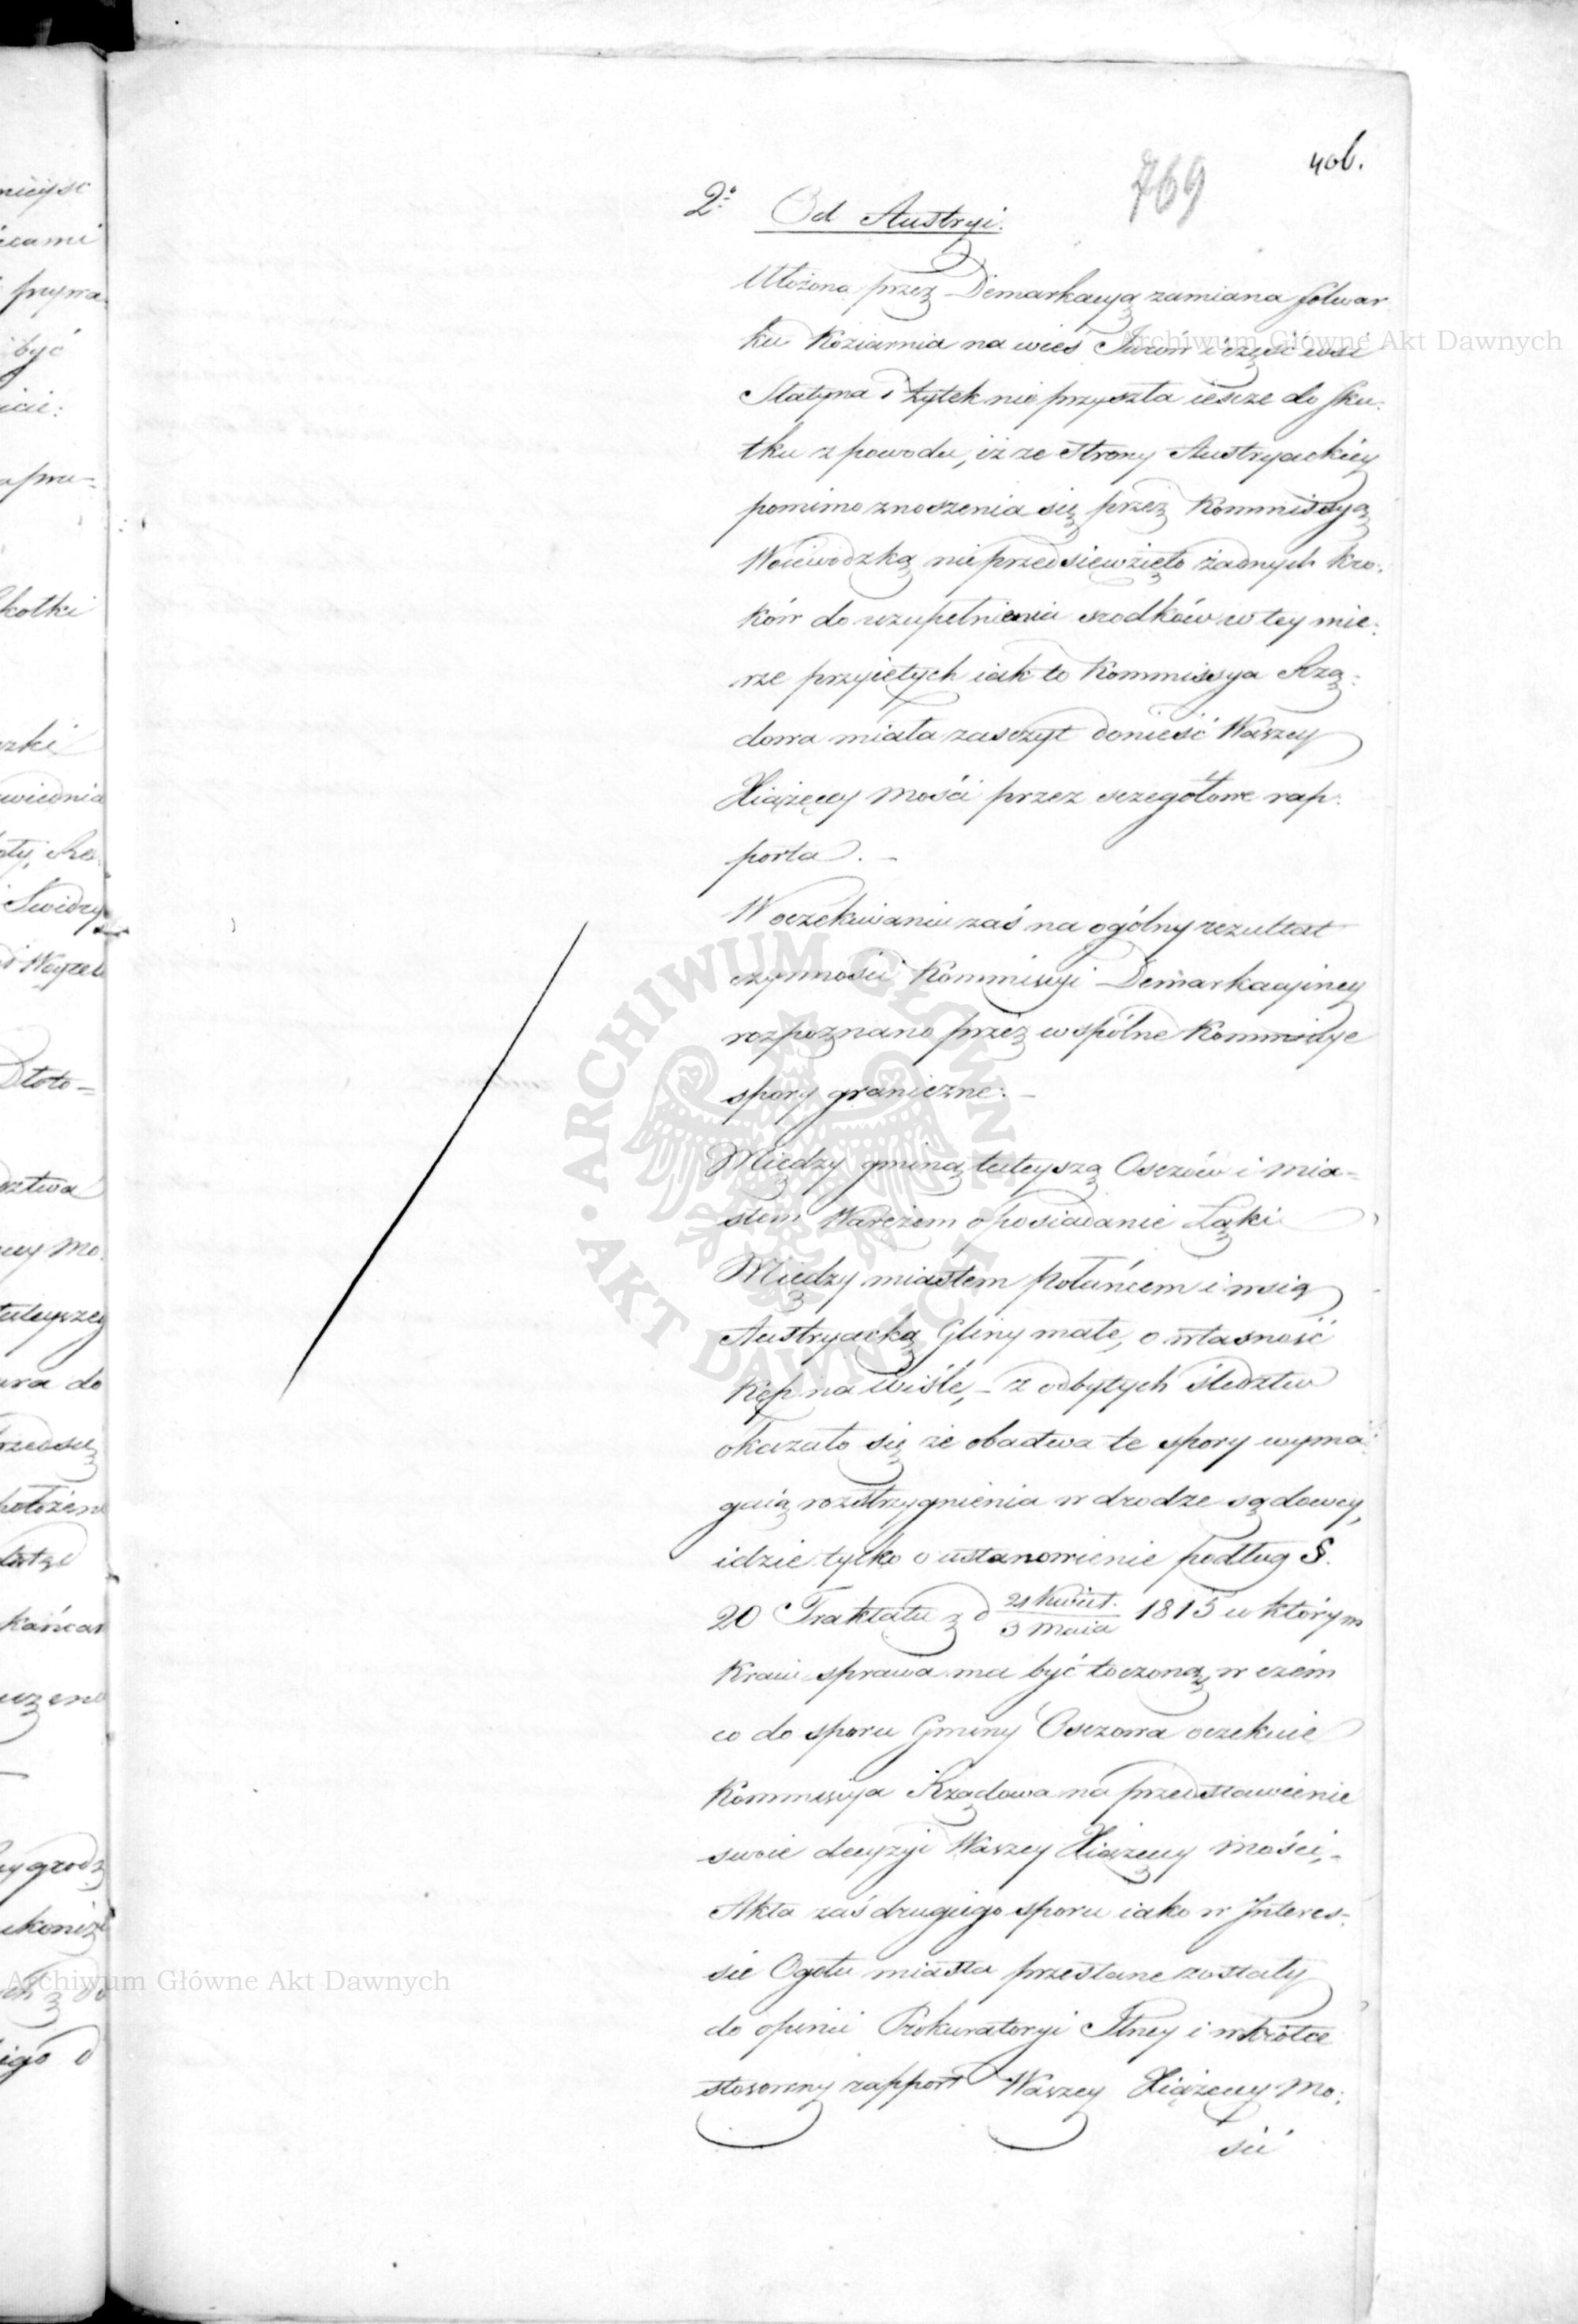 406.
769
2º Od Austryi.
Ułożona przez Demarkacyą zamiana folwar
ku Koziarnia na wieś Jurów i część wsi
Statyna i Żyłek nie przyszła ieszcze do sku-
tku z powodu, iż ze strony Austryackiey
pomimo znoszenia się przez Kommissyą
Woiewodzką nieprzedsięwzięto żadnych kro-
ków do uzupełnienia srodków w tey mie-
rze przyiętych iak to Kommissya Rzą-
dowa miała zaszczyt donieść Waszey
Xiążęcey Mości przez szczegółowe rap-
porta. –
W oczekiwaniu zaś na ogólny rezultat
czynności Kommissyi Demarkacyiney
rozpoznano przez wspólne Kommissye
spory graniczne. –
Między gminą tuteyszą Oszczów i mia-
stem Warężem o posiadanie Łąki
Między miastem Połańcem i wsią
Austryacką Gliny małe, o własność
Kęp na Wiśle, – z odbytych śledztw
okazało się że obadwa te spory wyma-
gaią rozstrzygnienia w drodze sądowey,
idzie tylko o ustanowienie podług §.
20 Traktatu z d 21 Kwiet./3 Maia 1815 w którym
Kraiu sprawa ma być toczoną, w czém
co do sporu Gminy Oszczowa oczekuie
Kommissya Rządowa na przedstawienie
swoie decyzyi Waszey Xiążęcey Mości, –
Akta zaś drugiego sporu iako w Interes-
sie Ogółu miasta przesłane zostały
do opinii Prokuratoryi Jlney i wkrótce
stosowny rapport Waszey Xiążęcey Mo-
ści
Archiwum Główne Akt Dawnych
Archiwum Główne Akt Dawnych
ARCHIWUM GŁÓWNE • AKT DAWNYCH •